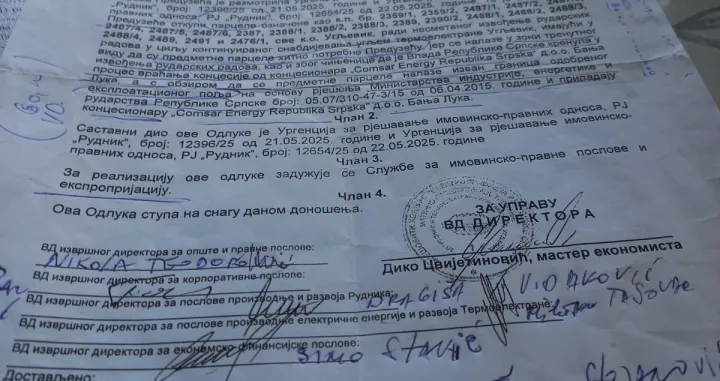 "Рудник", број: 12396/25 од 21.05.2025. године и
правних односа, РЈ "Рудник", број: 12654/25 од 22.05.2025. године
Предузеће откупи парцеле означене као к.п. бр.
2487/4, 2487/5, 2487/6, 2387, 2388/1, 2388/2, 2388/3, 2389, 2390/2, 2488/1, 2488/2, 2488/3,
2488/4, 2489, 2491 и 2476/1, све к.о. Угљевик, ради несметаног извођења рударских
радова у циљу континуираног снабдијевања угљем термоелектране Угљевик,
виду да су предметне парцеле хитно потребне Предузећу, јер се налазе у зони тренутног
извођења рударских радова, као и због чињенице да је Влада Републике Српске кренула у
процес враћања концесије од концесионара „Comsar Energy Republika Srpska" д.о.о. Бања
Лука, а с обзиром да се предметне парцеле налазе изван граница одобреног
експлоатационог поља на основу рјешења Министарства индустрије, енергетике и
рударства Републике Српске број: 05.07/310-47-3/15 од 06.04.2015. године и припадају
концесионару „Comsar Energy Republika Srpska" д.о.о. Бања Лука.
Члан 2.
Саставни дио ове Одлуке је Ургенција за рјешавање имовинско-правних односа, РЈ
„Рудник", број: 12396/25 од 21.05.2025. године и Ургенција за рјешавање имовинско-
правних односа, РЈ „Рудник", број: 12654/25 од 22.05.2025. године
Члан 3.
За реализацију ове одлуке задужује се Службе за имовинско-правне послове и
експропријацију.
Члан 4.
Ова Одлука ступа на снагу даном доношења.
ЗА УПРАВУ
ВД ДИРЕКТОРА
Дико Цвијетиновић, мастер економиста
ВД извршног директора за опште и правне послове:
NIKOLA TEODOROVIĆ
ВД извршног директора за корпоративне послове:
ВД извршног директора за послове производње и развоја Рудника:
DRAGIŠA VIDAKOVIĆ
ВД извршног директора за послове производње електричне енергије и развоја Термоелектране:
ВД извршног директора за економско-финансијске послове:
SIMO STAKIĆ
Достављено: